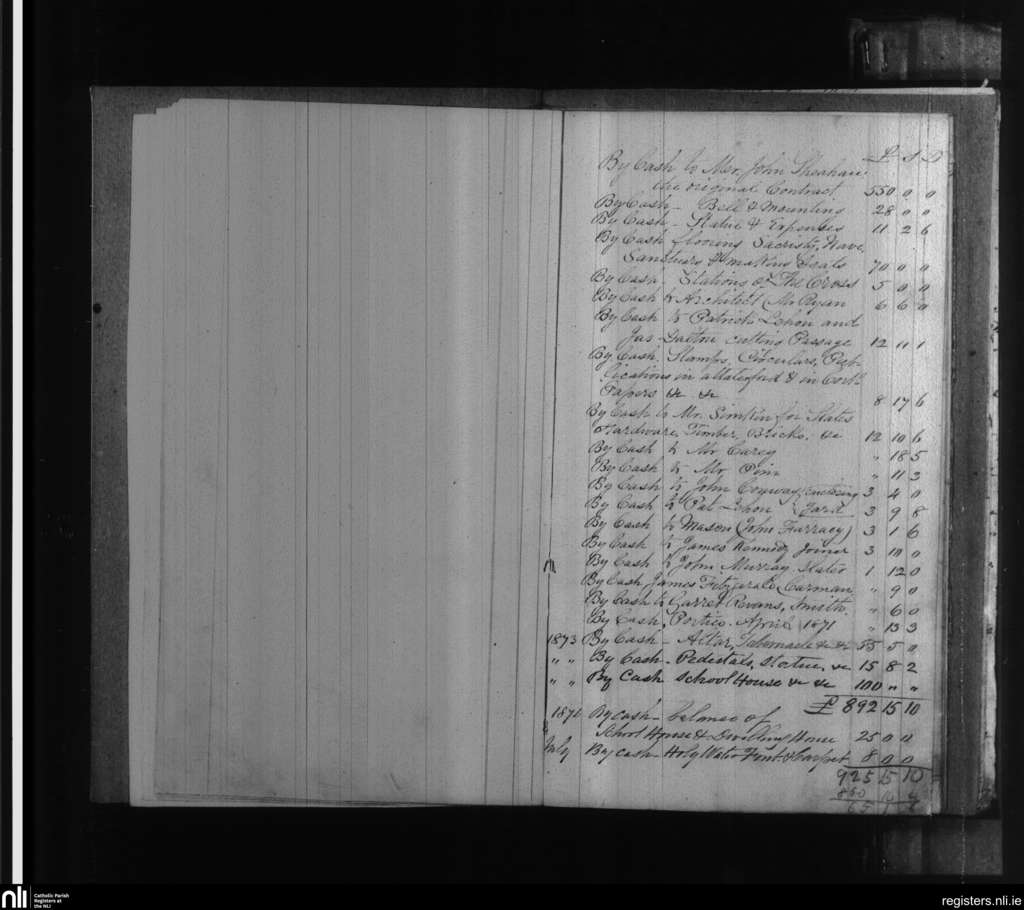 £ S D
By Cash to Mr. John Sheahan
the original Contract 550 0 0
By Cash - Bell & Mounting 28 0 0
By Cash - Statue & Expenses 11 2 6
By Cash flooring Sacristy, Nave,
Sanctuary & making Seats 70 0 0
By Cash, Stations of The Cross 5 0 0
By Cash to Architect (Mr Ryan 6 6 0
By Cash to Patrick Lehon and
Jas. Dalton cutting Passage 12 11 1
By Cash, Stamps, Circulars, Pub-
lications in Waterford & in Cork
Papers &c &c 8 17 6
By Cash to Mr. Simkin for Slates
Hardware, Timber, Bricks, &c 12 10 6
By Cash to Mr Carey " 18 5
By Cash to Mr. Pim " 11 3
By Cash to John Conway (enclosing 3 4 0
By Cash to Pat Lehon (Yard 3 9 8
By Cash to Mason (John Farracy) 3 1 6
By Cash to James Kennedy Joiner 3 10 0
By Cash to John Murray Slater 1 12 0
By Cash James Fitzgerald, Carman " 9 0
By Cash to Garret Evans, Smith. " 6 0
By Cash, Portico. April 1871 " 13 3
1873 By Cash - Altar, Tabernacle &c &c 55 5 0
" " By Cash - Pedestals, Statue, &c 15 8 2
" " By Cash School House &c &c 100 " "
£ 892 15 10
187 By cash - balance of
School House & Dwelling House 25 0 0
July By cash - Holy Water Font & Carpet 8 0 0
925 15 10
nli
Catholic Parish
Registers at
the NLI
registers.nli.ie